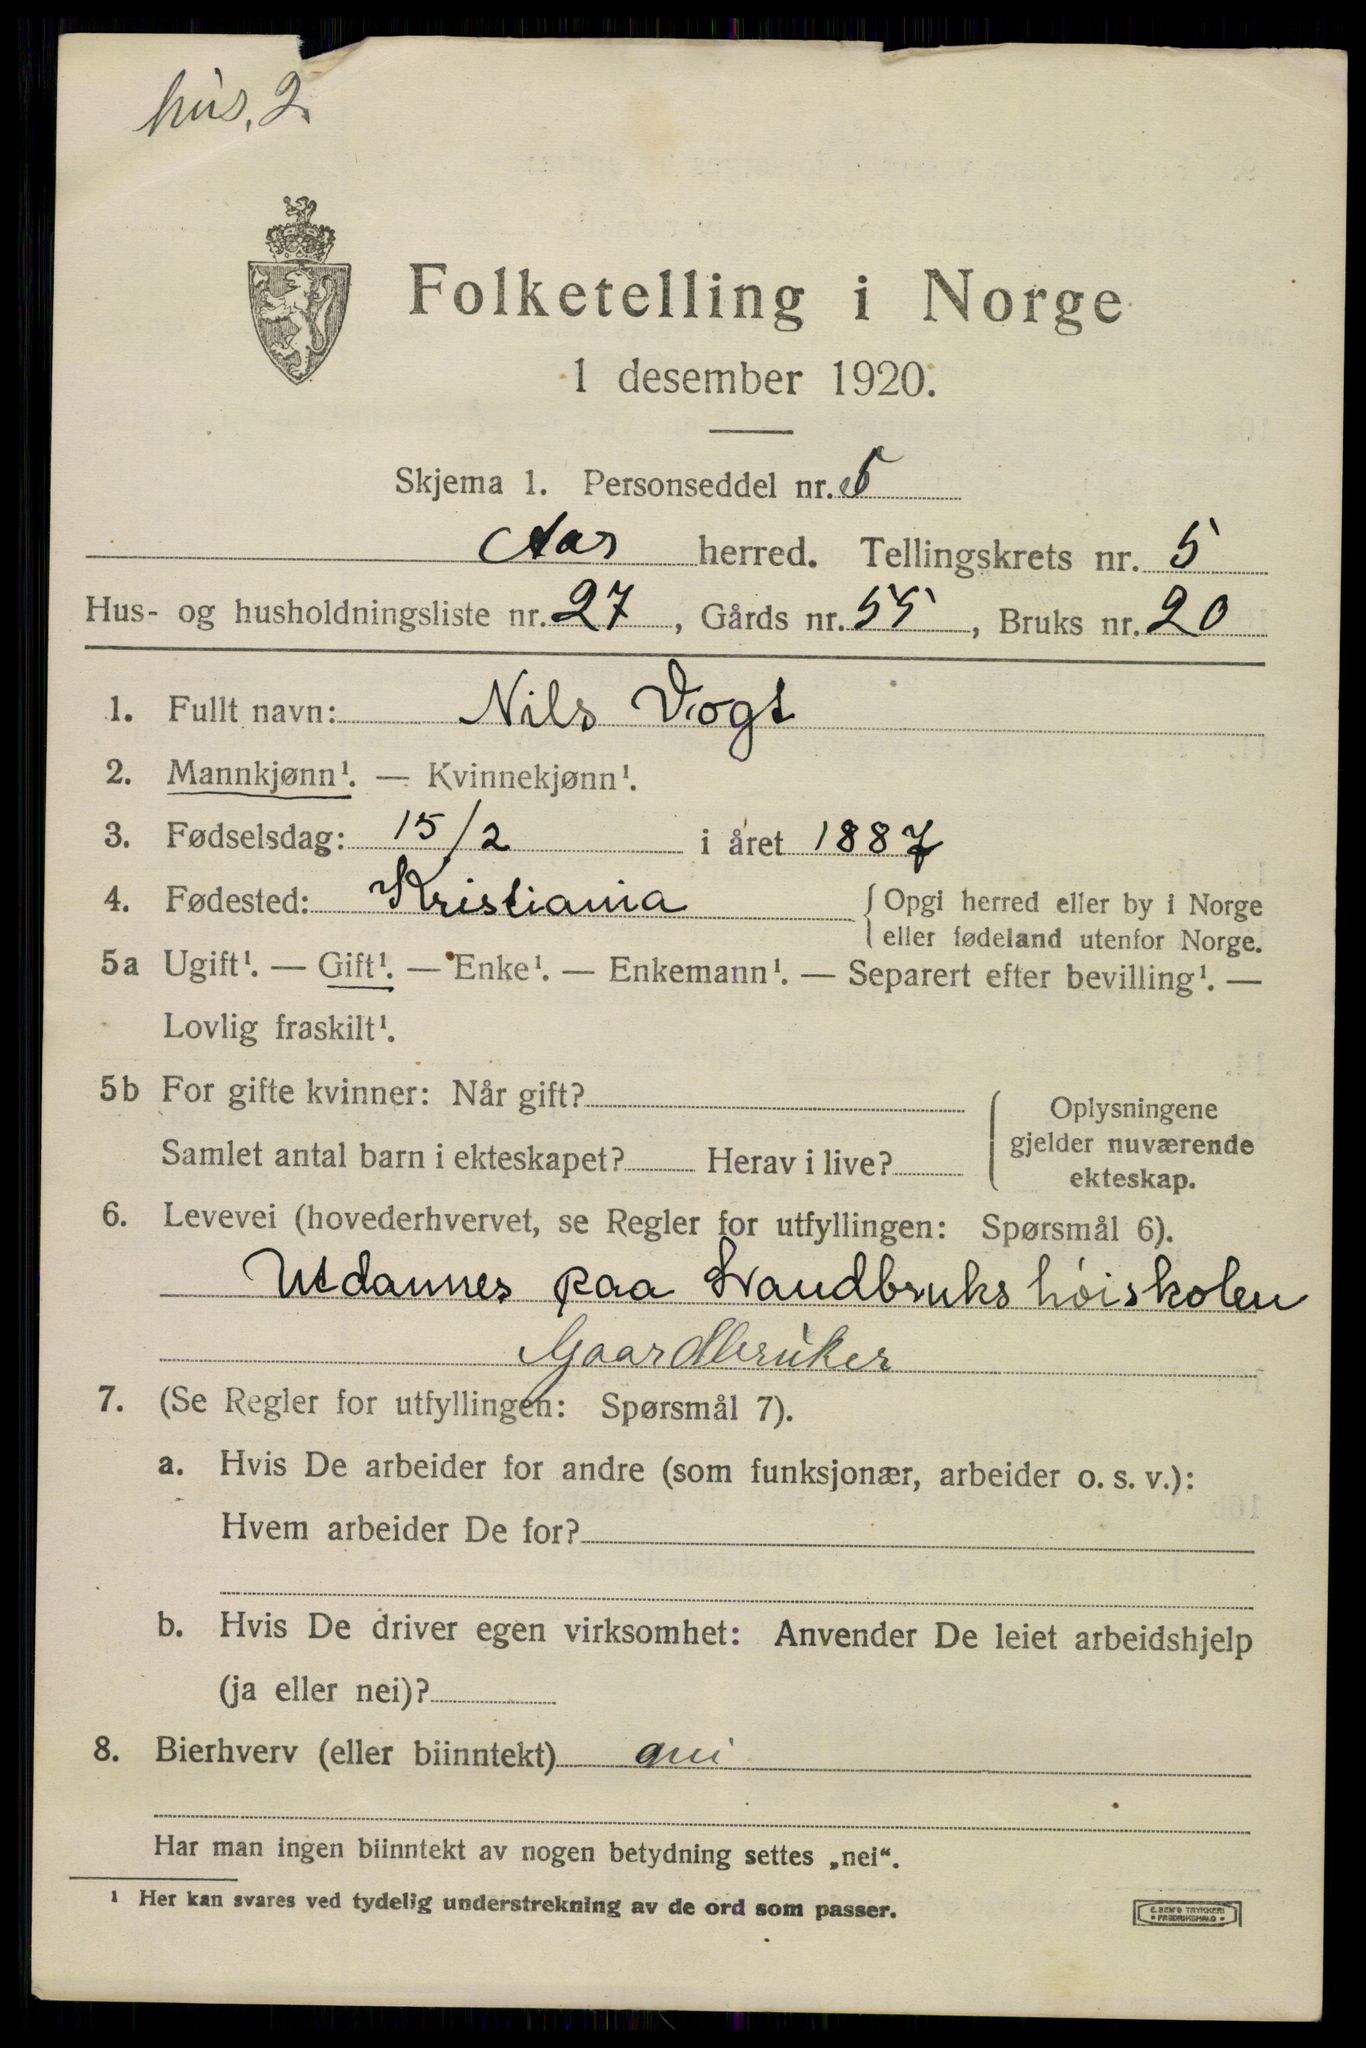 hus. 2.
Folketelling i Norge
1 desember 1920.
Skjema 1. Personseddel nr. 5
Aas herred. Tellingskrets nr. 5
Hus- og husholdningsliste nr. 27, Gårds nr. 55, Bruks nr. 20
1. Fullt navn: Nils Vogt
2. Mannkjønn¹. — Kvinnekjønn¹.
3. Fødselsdag: 15/2 i året 1887
4. Fødested: Kristiania { Opgi herred eller by i Norge
eller fødeland utenfor Norge.
5a Ugift¹. — Gift¹. — Enke¹. — Enkemann¹. — Separert efter bevilling¹. —
Lovlig fraskilt¹.
5b For gifte kvinner: Når gift?
Samlet antal barn i ekteskapet? Herav i live?
Oplysningene
gjelder nuværende
ekteskap.
6. Levevei (hovederhvervet, se Regler for utfyllingen: Spørsmål 6).
Utdannes paa Landbrukshøiskolen
Gaardbruker
7. (Se Regler for utfyllingen: Spørsmål 7).
a. Hvis De arbeider for andre (som funksjonær, arbeider o. s. v.):
Hvem arbeider De for?
b. Hvis De driver egen virksomhet: Anvender De leiet arbeidshjelp
(ja eller nei)?
8. Bierhverv (eller biinntekt)
Har man ingen biinntekt av nogen betydning settes „nei“.
¹ Her kan svares ved tydelig understrekning av de ord som passer.
E. SEM'S TRYKKERI
FREDRIKSHALD